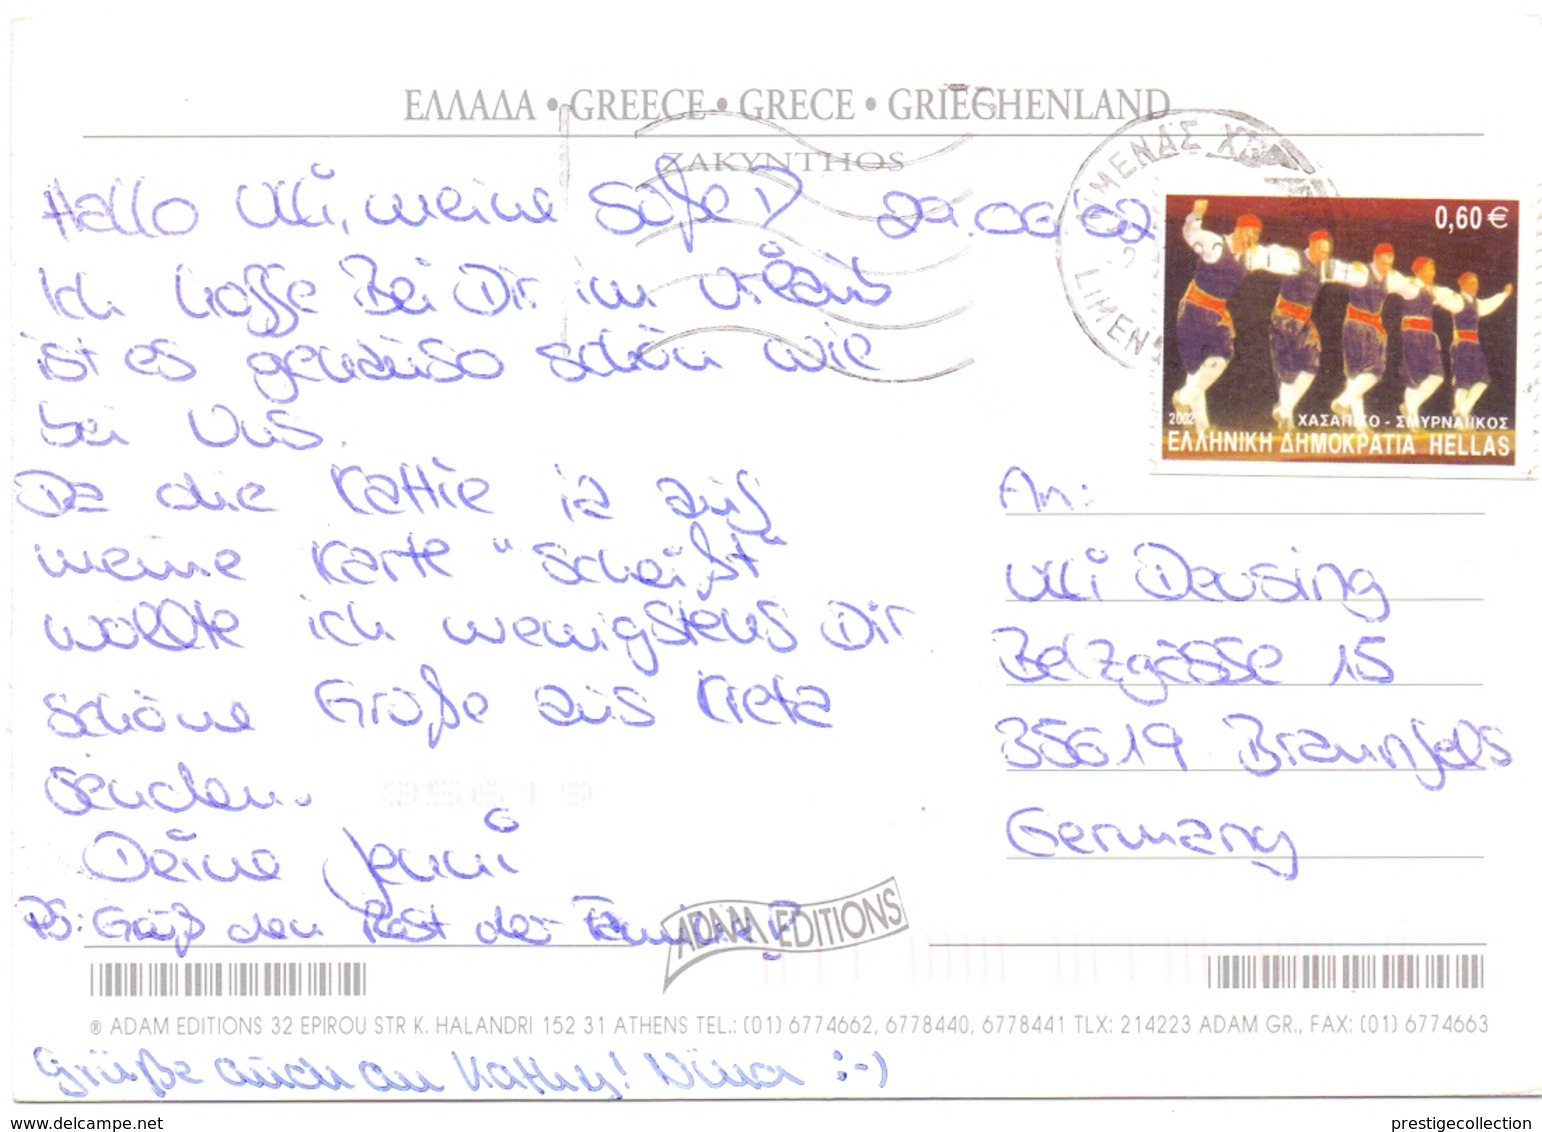 ΕΛΛΑΔΑ • GREECE • GRECE • GRIECHENLAND
ZAKYNTHOS
Hallo Ulli, meine Süße! 29.06.02
Ich hoffe Bei Dir im Urlaub
ist es genauso schön wie
bei Uns.
Da die Kathie ja auf
meine Karte "scheißt"
wollte ich wenigstens Dir
schöne Grüße aus Kreta
senden.
Deine Jenni
PS: Grüß den Rest der Familie!
ΛΙΜΕΝΑΣ Χ
LIMEN
0,60 €
2002
ΧΑΣΑΠΙΚΟ - ΣΜΥΡΝΑΙΙΚΟΣ
ΕΛΛΗΝΙΚΗ ΔΗΜΟΚΡΑΤΙΑ HELLAS
An:
Ulli Deusing
Belzgasse 15
35619 Braunfels
Germany
35619
ADAM EDITIONS
® ADAM EDITIONS 32 EPIROU STR K. HALANDRI 152 31 ATHENS TEL.: (01) 6774662, 6778440, 6778441 TLX: 214223 ADAM GR., FAX: (01) 6774663
Grüße auch an Kathy! Nina :-)
www.delcampe.net
prestigecollection